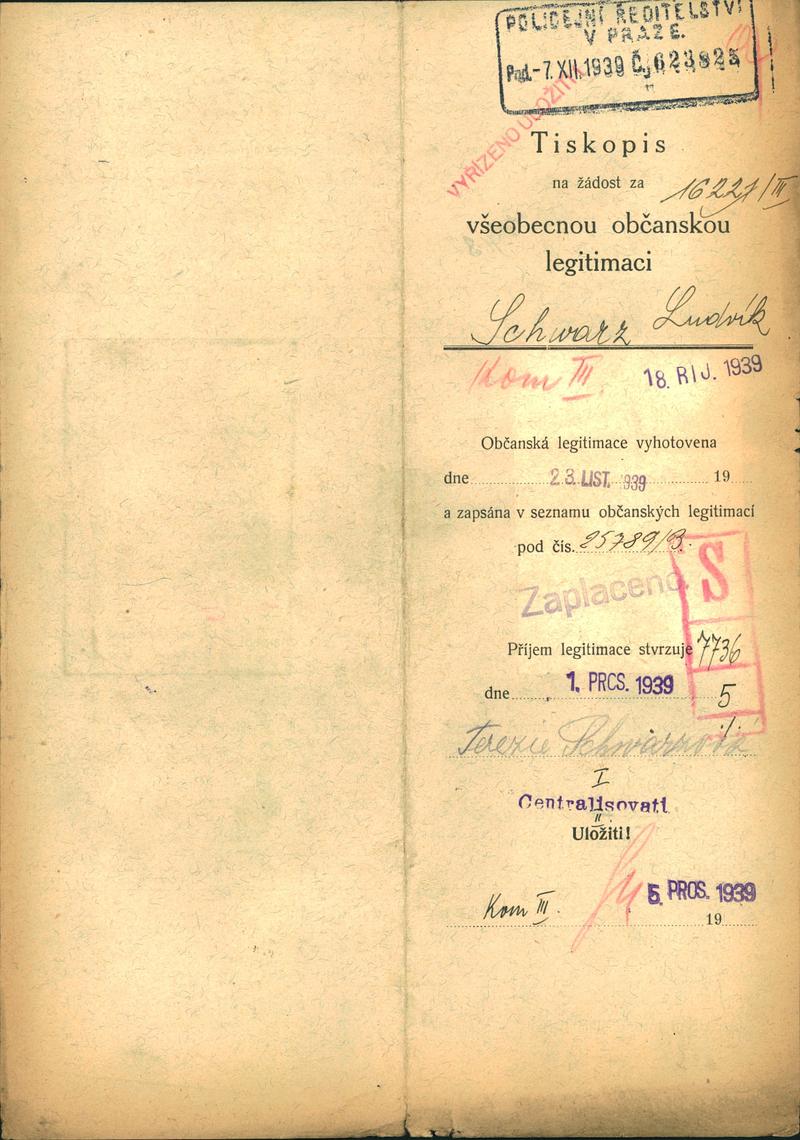 POLICEJNÍ ŘEDITELSTVÍ
V PRAZE.
Pod. -7. XII. 1939 Čj 623825
VYŘÍZENO ULOŽITI
Tiskopis
na žádost za
16221/III
všeobecnou občanskou
legitimaci
Schwarz Ludvík
Kom III 18. ŘÍJ. 1939
Občanská legitimace vyhotovena
dne 23. LIST. 939 19
a zapsána v seznamu občanských legitimací
pod čís. 25789/B.
Zaplaceno
S
Příjem legitimace stvrzuje 7736
dne 1. PROS. 1939 5
Terezie Schwarzová
I
Centralisovati
II
Uložiti!
Kom III. 5. PROS. 1939
19